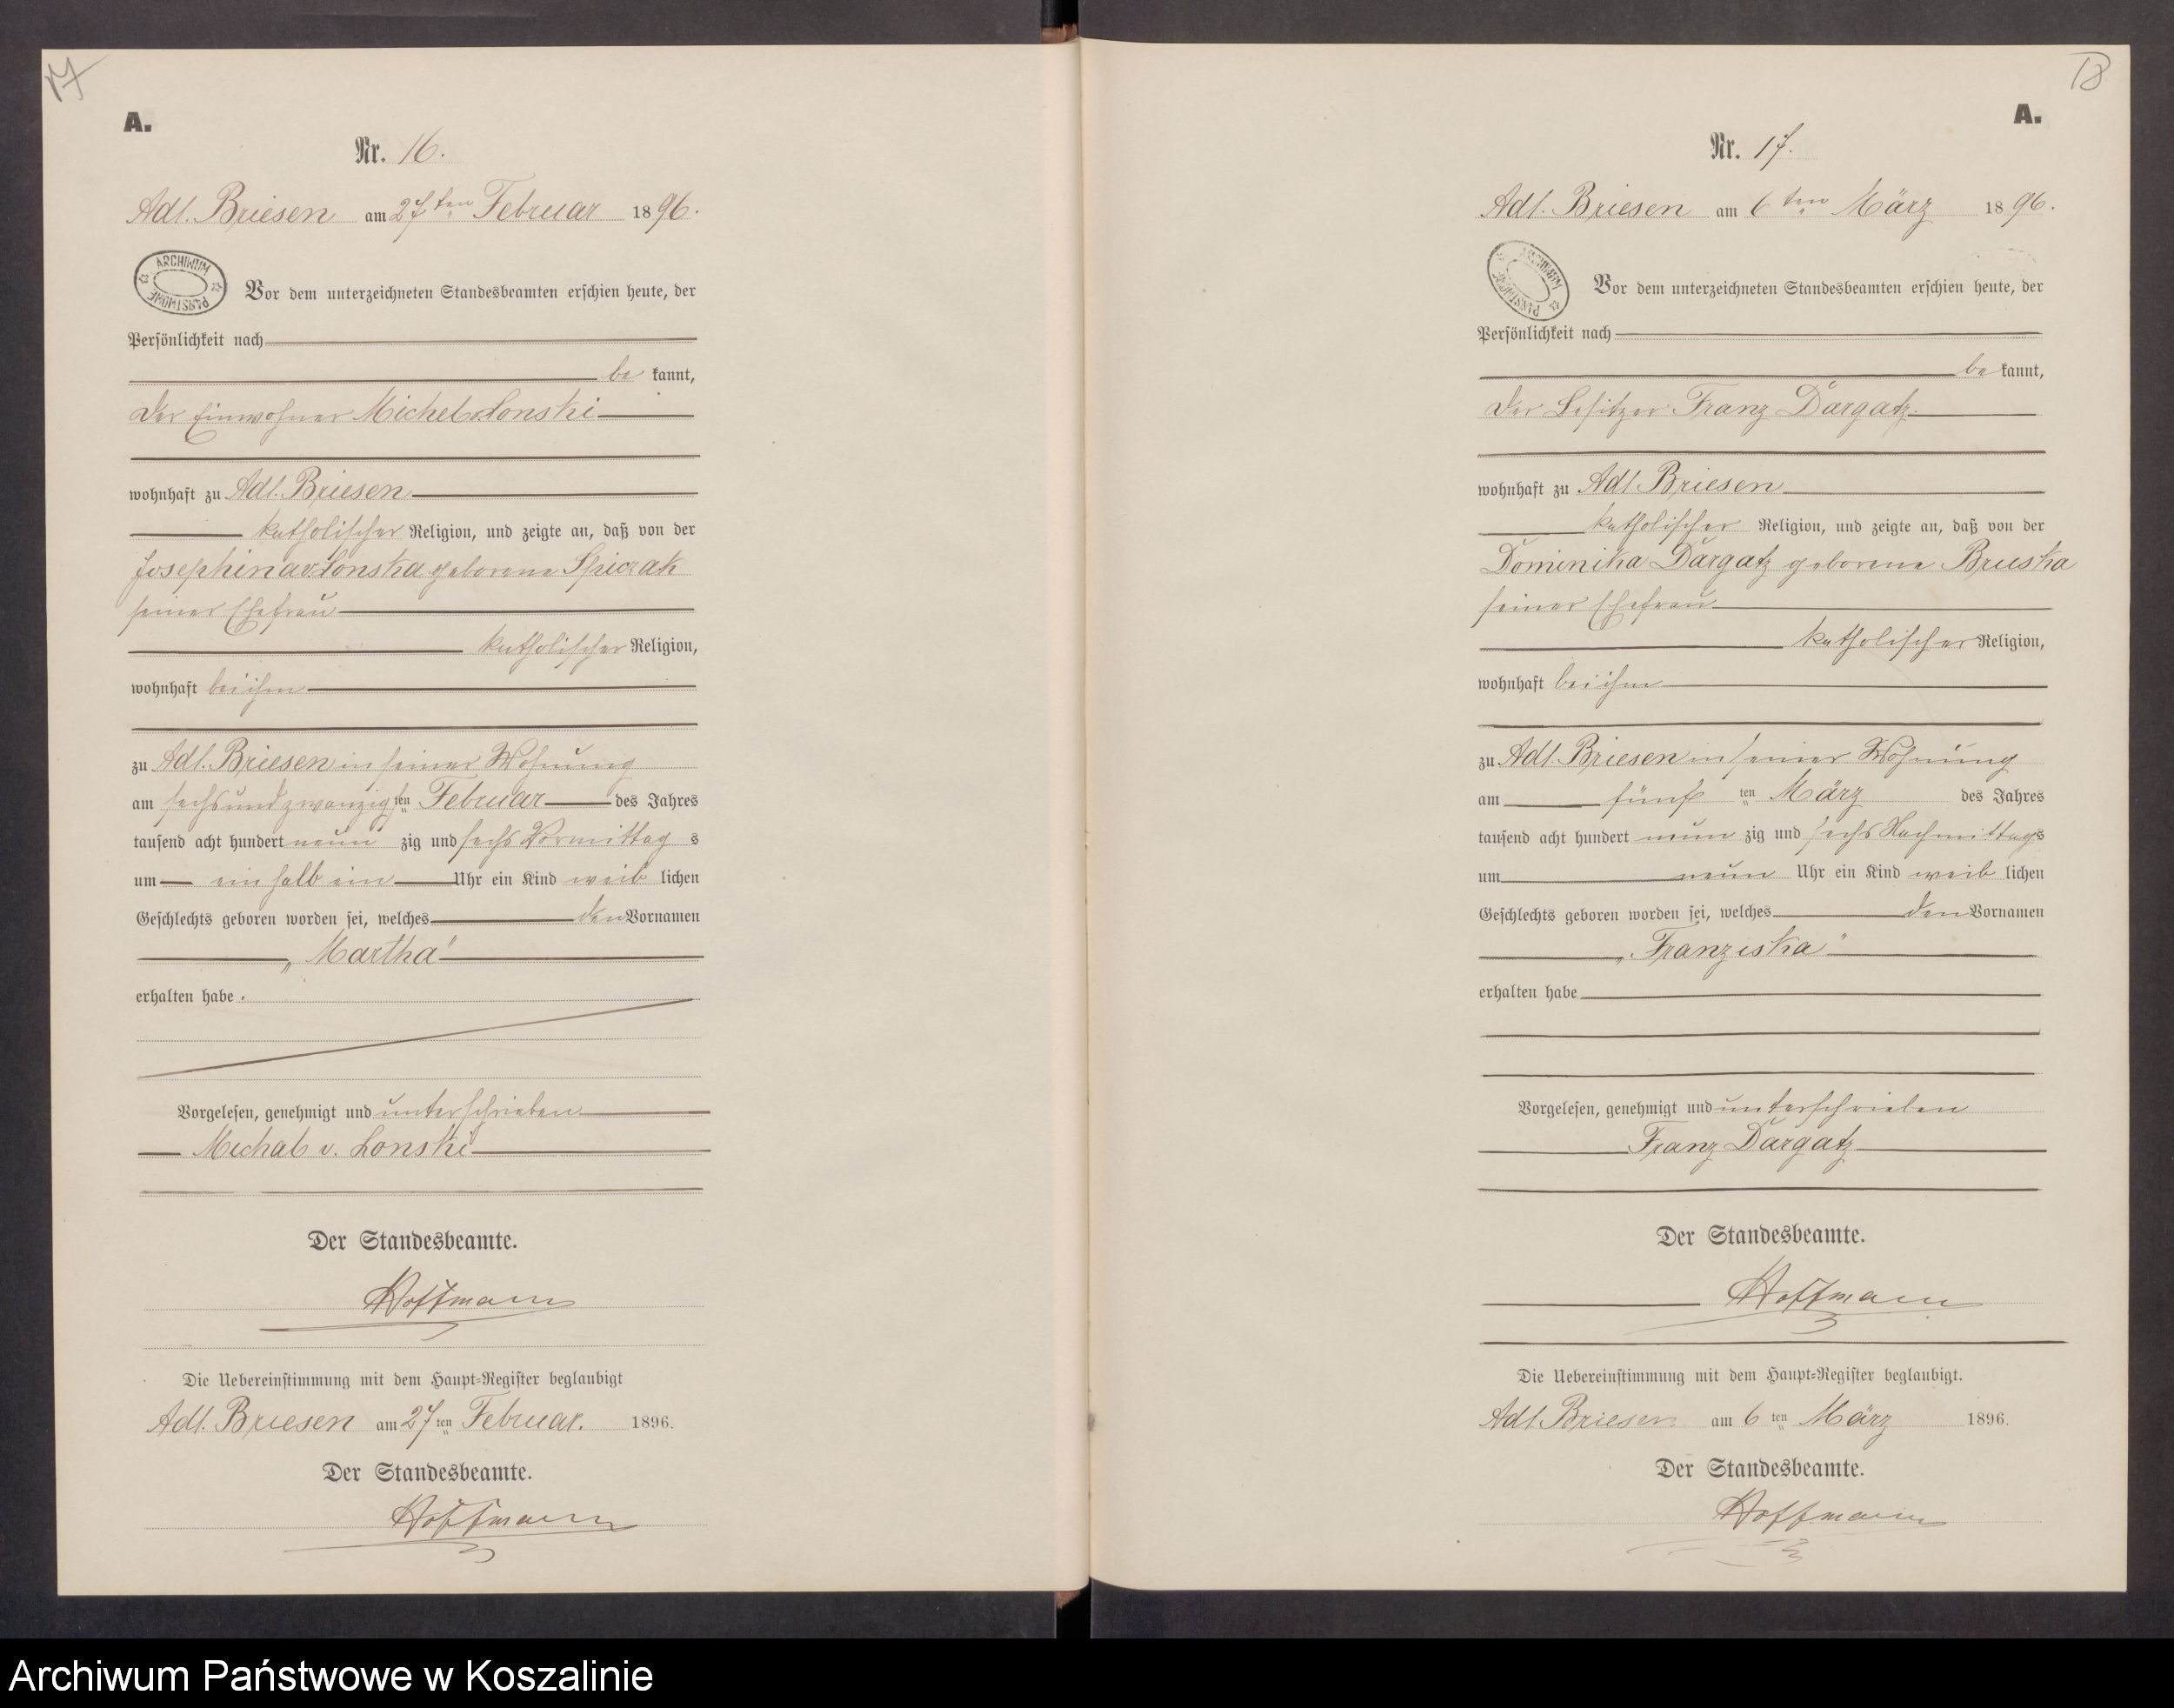 17
A.
Nr. 16.
Adl. Briesen am 27ten Februar 1896.
ARCHIWUM PAŃSTWOWE
Vor dem unterzeichneten Standesbeamten erschien heute, der
Persönlichkeit nach
be kannt,
der Einwohner Michel v. Lonski
wohnhaft zu Adl. Briesen
katholischer Religion, und zeigte an, daß von der
Josephina v. Lonska geborene Spiczak
seiner Ehefrau
katholischer Religion,
wohnhaft bei ihm
zu Adl. Briesen in seiner Wohnung
am sechsundzwanzigsten Februar des Jahres
tausend acht hundert neun zig und sechs Vormittag s
um ein halb ein Uhr ein Kind weib lichen
Geschlechts geboren worden sei, welches den Vornamen
„Martha"
erhalten habe.
Vorgelesen, genehmigt und unterschrieben
Michal v. Lonski
Der Standesbeamte.
Hoffmann
Die Uebereinstimmung mit dem Haupt-Register beglaubigt
Adl. Briesen am 27ten Februar. 1896.
Der Standesbeamte.
Hoffmann
18
A.
Nr. 17.
Adl. Briesen am 6ten März 1896.
ARCHIWUM PAŃSTWOWE
Vor dem unterzeichneten Standesbeamten erschien heute, der
Persönlichkeit nach
be kannt,
der Besitzer Franz Dargatz
wohnhaft zu Adl. Briesen
katholischer Religion, und zeigte an, daß von der
Dominika Dargatz geborene Bruska
seiner Ehefrau
katholischer Religion,
wohnhaft bei ihm
zu Adl. Briesen in seiner Wohnung
am fünf ten März des Jahres
tausend acht hundert neun zig und sechs Nachmittags
um neun Uhr ein Kind weib lichen
Geschlechts geboren worden sei, welches den Vornamen
„Franziska"
erhalten habe
Vorgelesen, genehmigt und unterschrieben
Franz Dargatz
Der Standesbeamte.
Hoffmann
Die Uebereinstimmung mit dem Haupt-Register beglaubigt.
Adl. Briesen am 6ten März 1896.
Der Standesbeamte.
Hoffmann
Archiwum Państwowe w Koszalinie